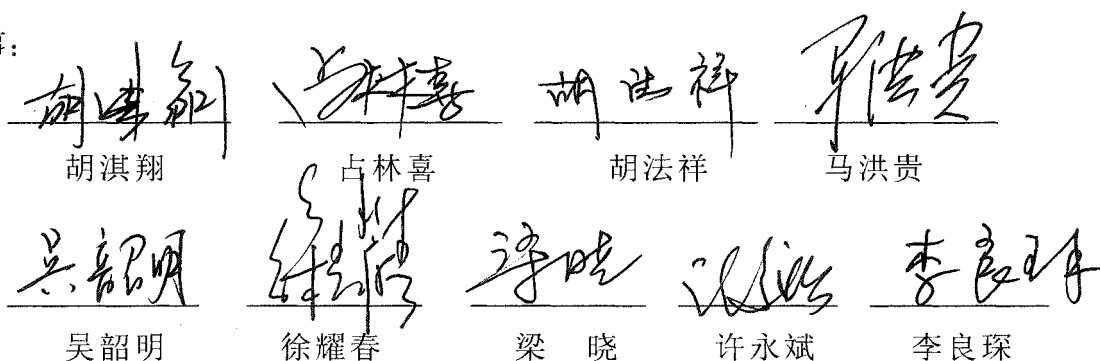 胡淇翔 占林喜 胡法祥 马洪贵
胡淇翔 占林喜 胡法祥 马洪贵
吴韶明 梁晓 李良琛
吴韶明 徐耀春 梁 晓 许永斌 李良琛